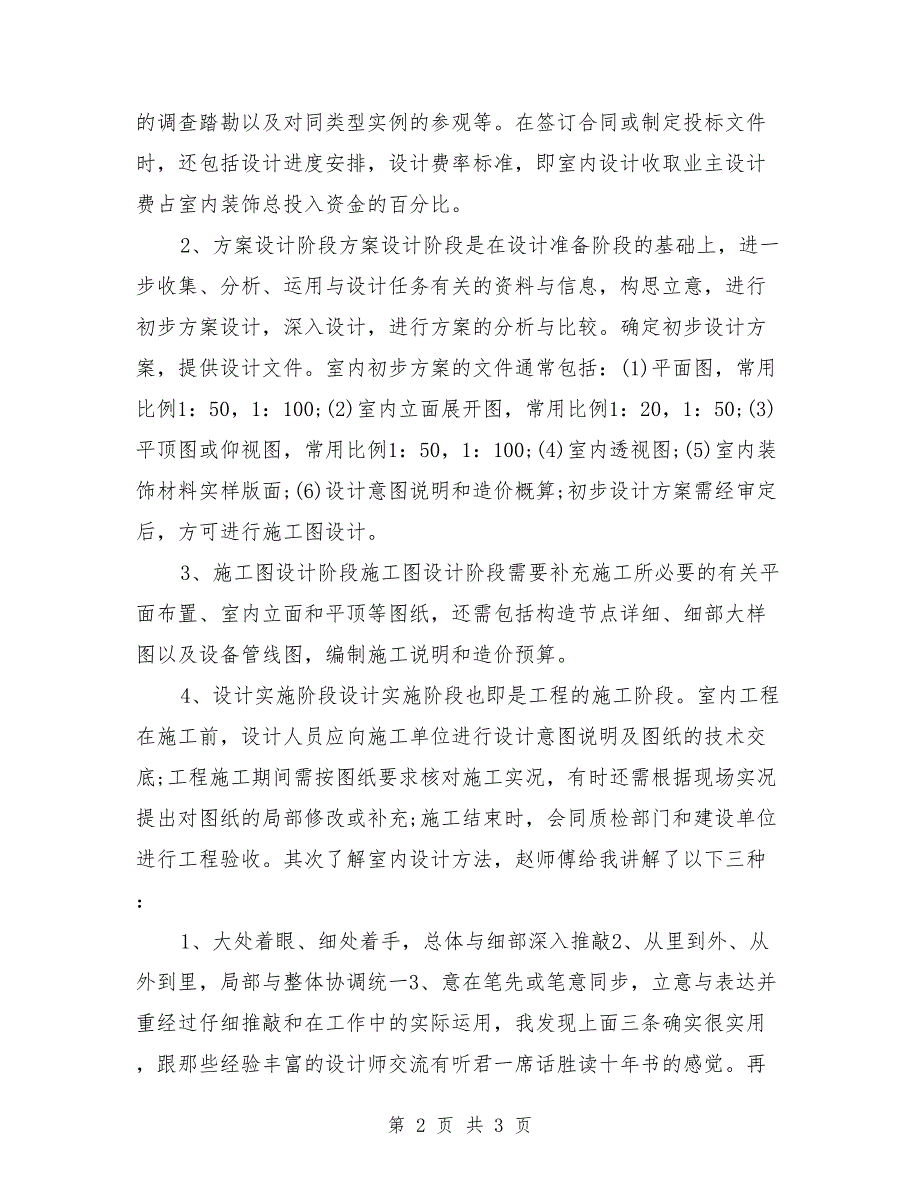 的调查踏勘以及对同类型实例的参观等。在签订合同或制定投标文件
时，还包括设计进度安排，设计费率标准，即室内设计收取业主设计
费占室内装饰总投入资金的百分比。
2、方案设计阶段方案设计阶段是在设计准备阶段的基础上，进一
步收集、分析、运用与设计任务有关的资料与信息，构思立意，进行
初步方案设计，深入设计，进行方案的分析与比较。确定初步设计方
案，提供设计文件。室内初步方案的文件通常包括：(1)平面图，常用
比例1：50，1：100;(2)室内立面展开图，常用比例1：20，1：50;(3)
平顶图或仰视图，常用比例1：50，1：100;(4)室内透视图;(5)室内装
饰材料实样版面;(6)设计意图说明和造价概算;初步设计方案需经审定
后，方可进行施工图设计。
3、施工图设计阶段施工图设计阶段需要补充施工所必要的有关平
面布置、室内立面和平顶等图纸，还需包括构造节点详细、细部大样
图以及设备管线图，编制施工说明和造价预算。
4、设计实施阶段设计实施阶段也即是工程的施工阶段。室内工程
在施工前，设计人员应向施工单位进行设计意图说明及图纸的技术交
底;工程施工期间需按图纸要求核对施工实况，有时还需根据现场实况
提出对图纸的局部修改或补充;施工结束时，会同质检部门和建设单位
进行工程验收。其次了解室内设计方法，赵师傅给我讲解了以下三种
：
1、大处着眼、细处着手，总体与细部深入推敲2、从里到外、从
外到里，局部与整体协调统一3、意在笔先或笔意同步，立意与表达并
重经过仔细推敲和在工作中的实际运用，我发现上面三条确实很实用
，跟那些经验丰富的设计师交流有听君一席话胜读十年书的感觉。再
第 2 页 共 3 页